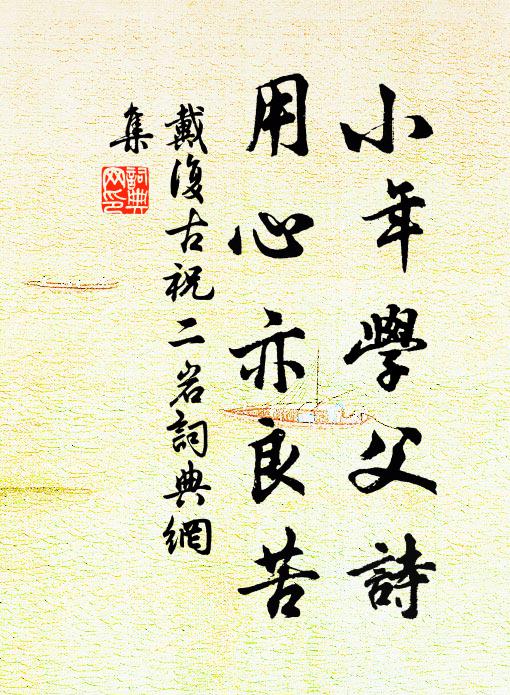 小年學父詩
用心亦良苦
戴復古祝二岩詞典網
集
詞典網印